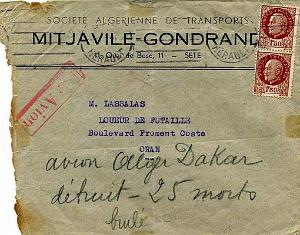 SOCIÉTÉ ALGERIENNE DE TRANSPORTS
MITJAVILE-GONDRAND
Quai de Bosc, 11 - SETE
HERAULT
HERAULT
Par Avion
M. LASSALAS
LOUEUR DE FUTAILLE
Boulevard Froment Coste
ORAN
avion Alger Dakar
détruit - 25 morts
brulé